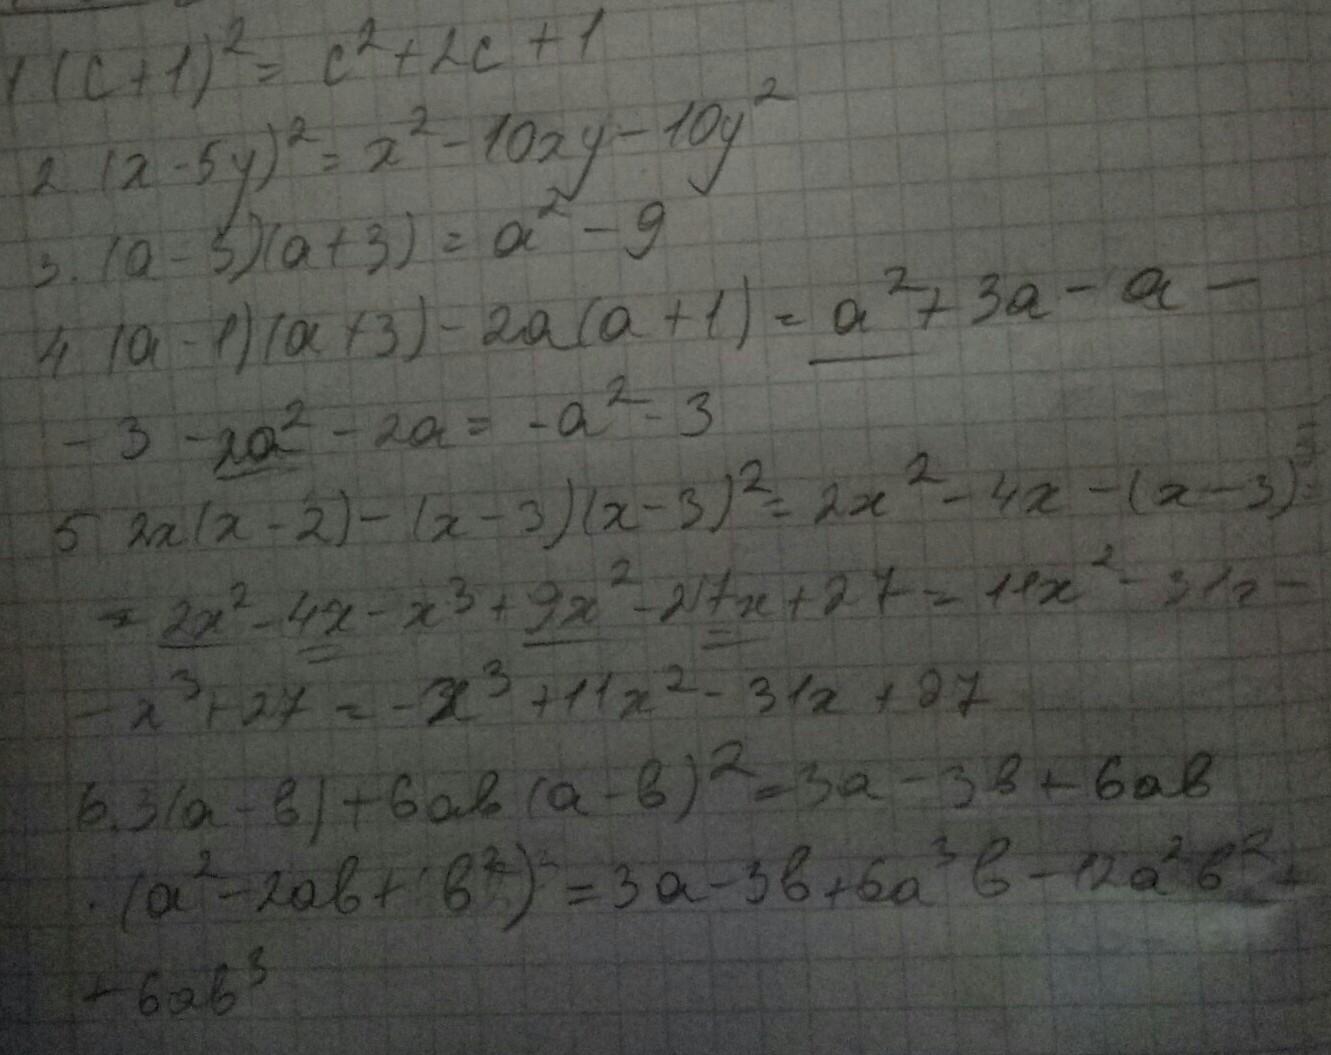 1 (c+1)² = c²+2c+1
2. (x-5y)² = x² - 10xy - 10y²
3. (a-3)(a+3) = a² - 9
4 (a-1)(a+3) - 2a(a+1) = a² + 3a - a -
- 3 - 2a² - 2a = -a² - 3
5 2x(x-2) - (x-3)(x-3)² = 2x² - 4x - (x-3)³ =
= 2x² - 4x - x³ + 9x² - 27x + 27 = 11x² - 31x -
- x³ + 27 = -x³ + 11x² - 31x + 27
6. 3(a-b) + 6ab(a-b)² = 3a - 3b + 6ab
· (a² - 2ab + b²) = 3a - 3b + 6a³b - 12a²b² +
+ 6ab³